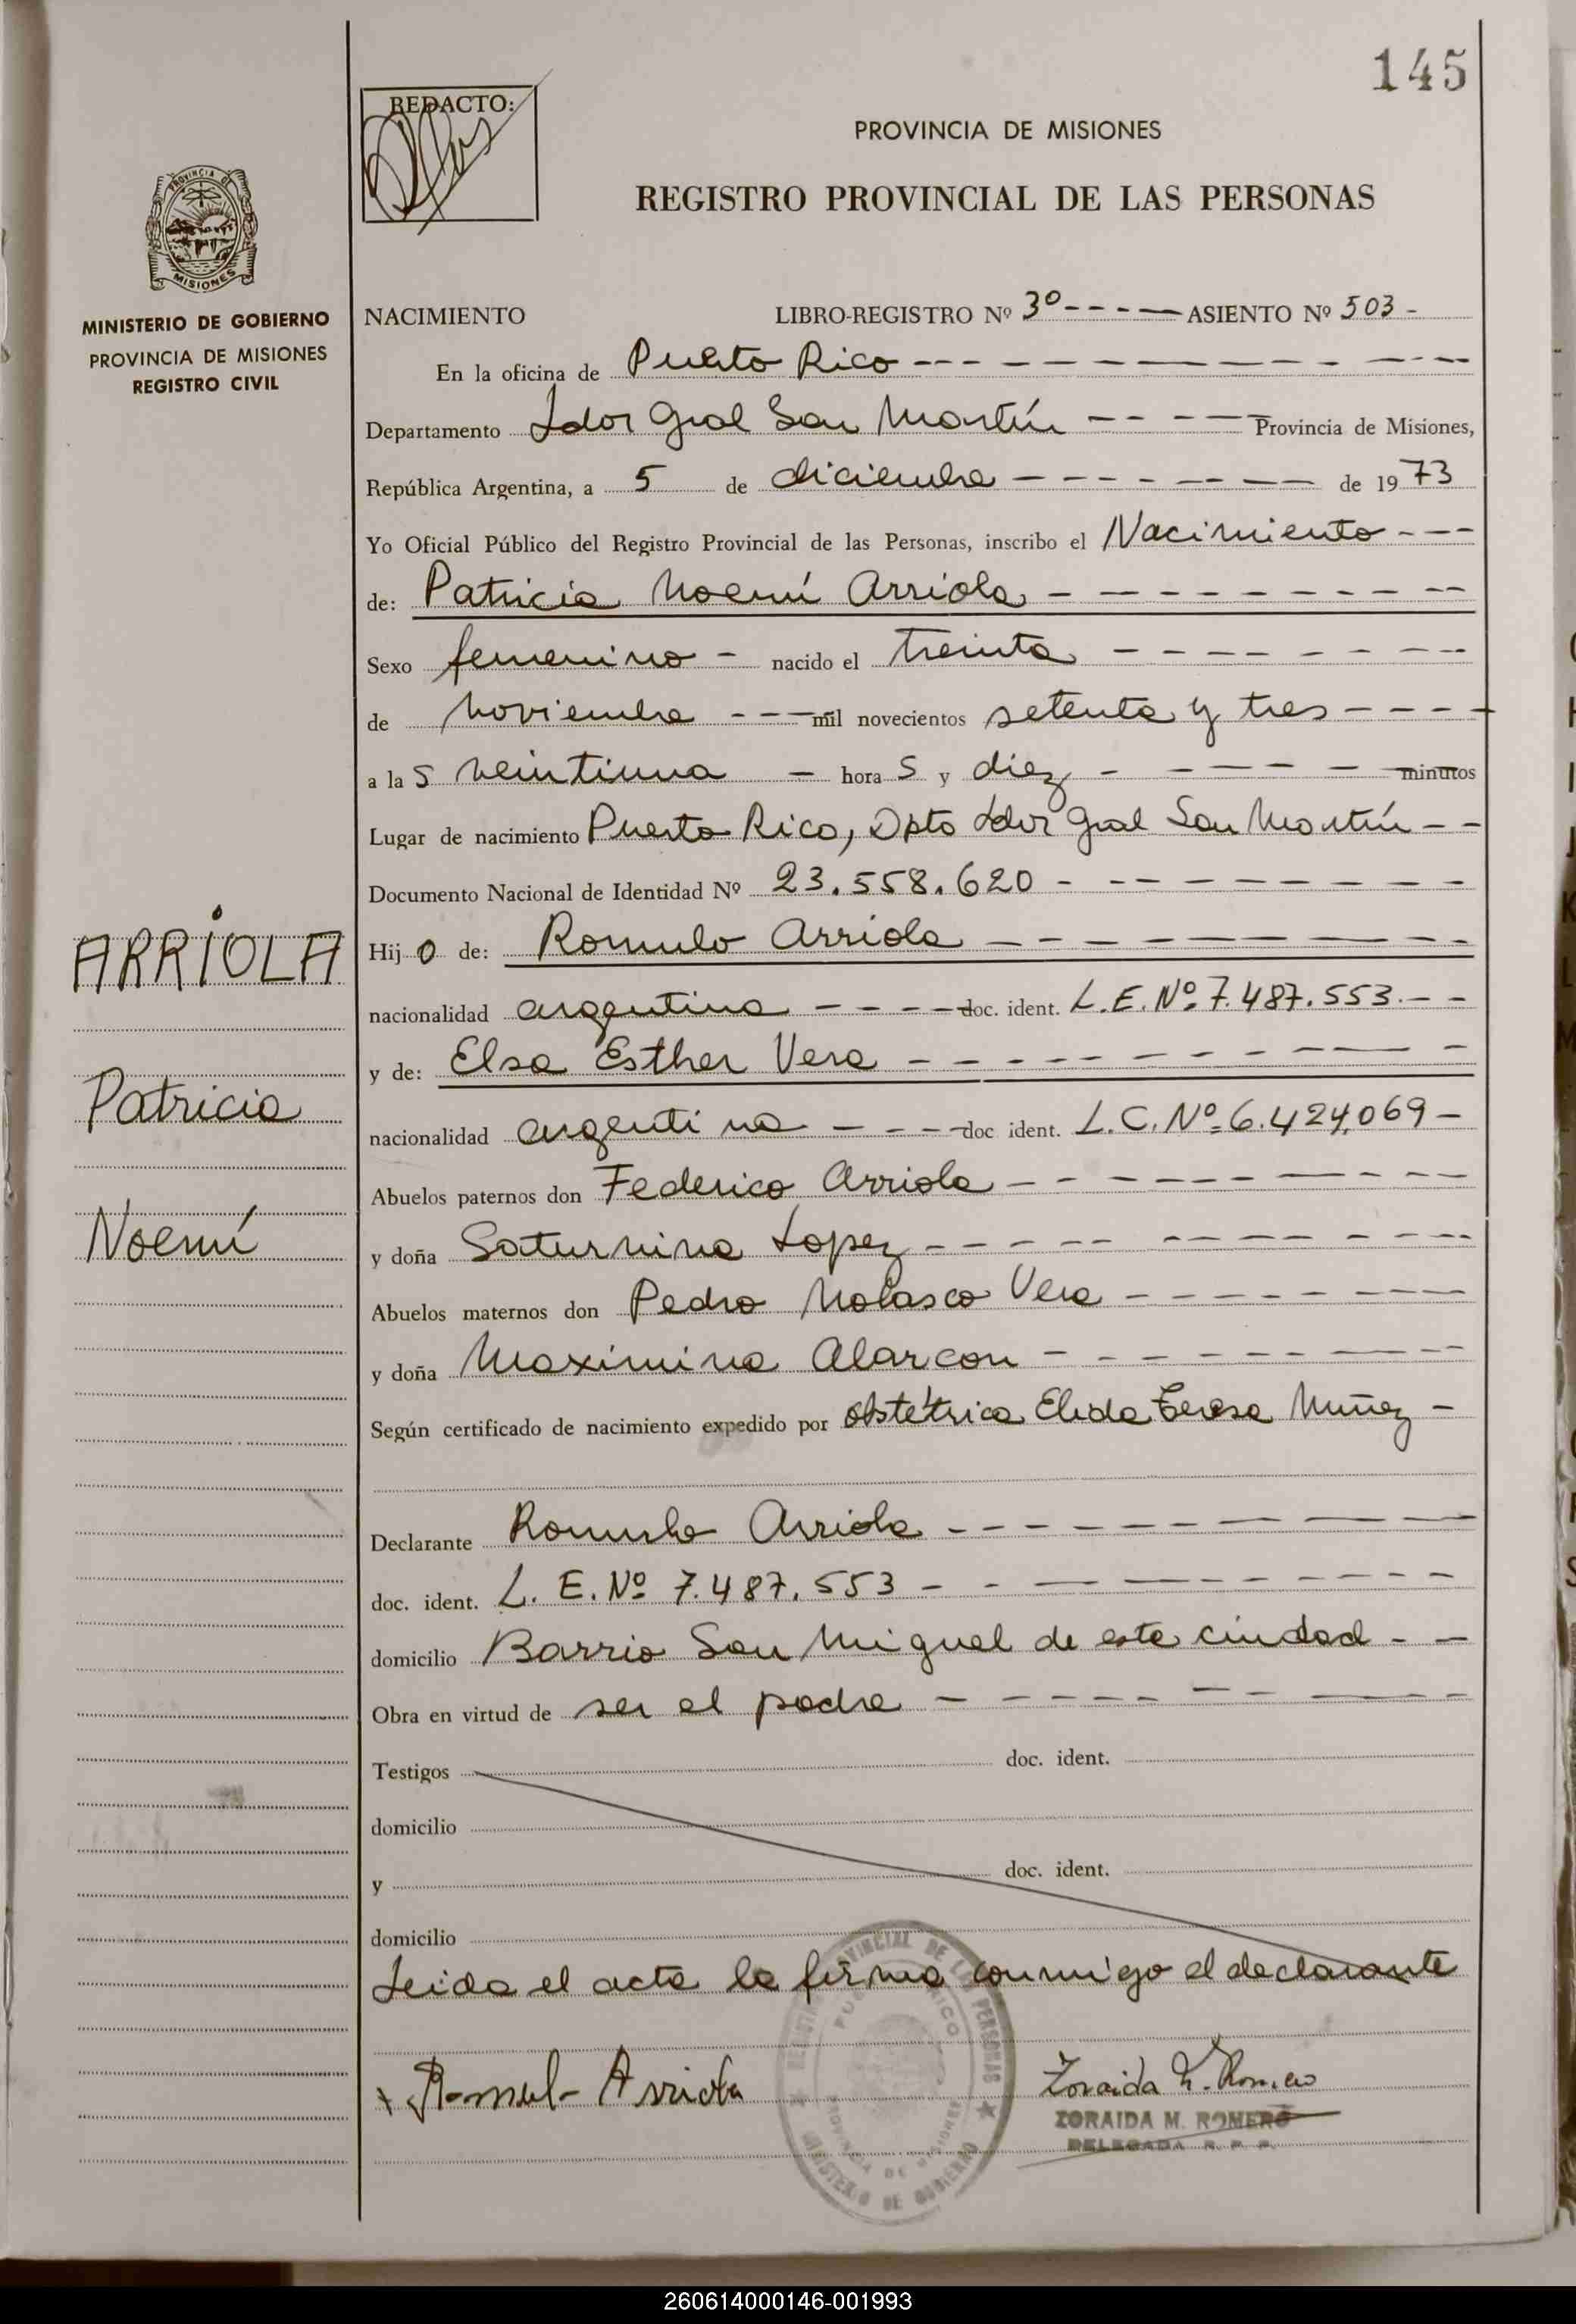 145
REDACTO:
PROVINCIA DE MISIONES
REGISTRO PROVINCIAL DE LAS PERSONAS
PROVINCIA DE
MISIONES
MINISTERIO DE GOBIERNO
PROVINCIA DE MISIONES
REGISTRO CIVIL
NACIMIENTO LIBRO-REGISTRO Nº 3º ASIENTO Nº 503 -
En la oficina de Puerto Rico
Departamento Ldor Gral San Martín Provincia de Misiones,
República Argentina, a 5 de diciembre de 1973
Yo Oficial Público del Registro Provincial de las Personas, inscribo el Nacimiento
de: Patricia Noemí Arriola
Sexo femenino - nacido el treinta
de noviembre mil novecientos setenta y tres
a las veintiuna - horas y diez minutos
Lugar de nacimiento Puerto Rico, Dpto Ldor Gral San Martín
Documento Nacional de Identidad Nº 23.558.620
ARRIOLA
Hijo de: Romulo Arriola
nacionalidad argentina doc. ident. L.E. Nº 7.487.553.
y de: Elsa Esther Vera
Patricia
nacionalidad argentina doc ident. L.C. Nº 6.424.069
Abuelos paternos don Federico Arriola
Noemí
y doña Saturnina Lopez
Abuelos maternos don Pedro Nolasco Vera
y doña Maximina Alarcon
Según certificado de nacimiento expedido por obstétrica Elida Teresa Muñez
Declarante Romulo Arriola
doc. ident. L. E. Nº 7.487.553
domicilio Barrio San Miguel de esta ciudad
Obra en virtud de ser el padre
Testigos doc. ident.
domicilio
y doc. ident.
domicilio
Leida el acta la firma conmigo el declarante
Romulo Arriola
Zoraida M. Romero
ZORAIDA M. ROMERO
DELEGADA R. P. P.
REGISTRO PROVINCIAL DE LAS PERSONAS
PUERTO RICO
PROVINCIA DE MISIONES
MINISTERIO DE GOBIERNO
260614000146-001993